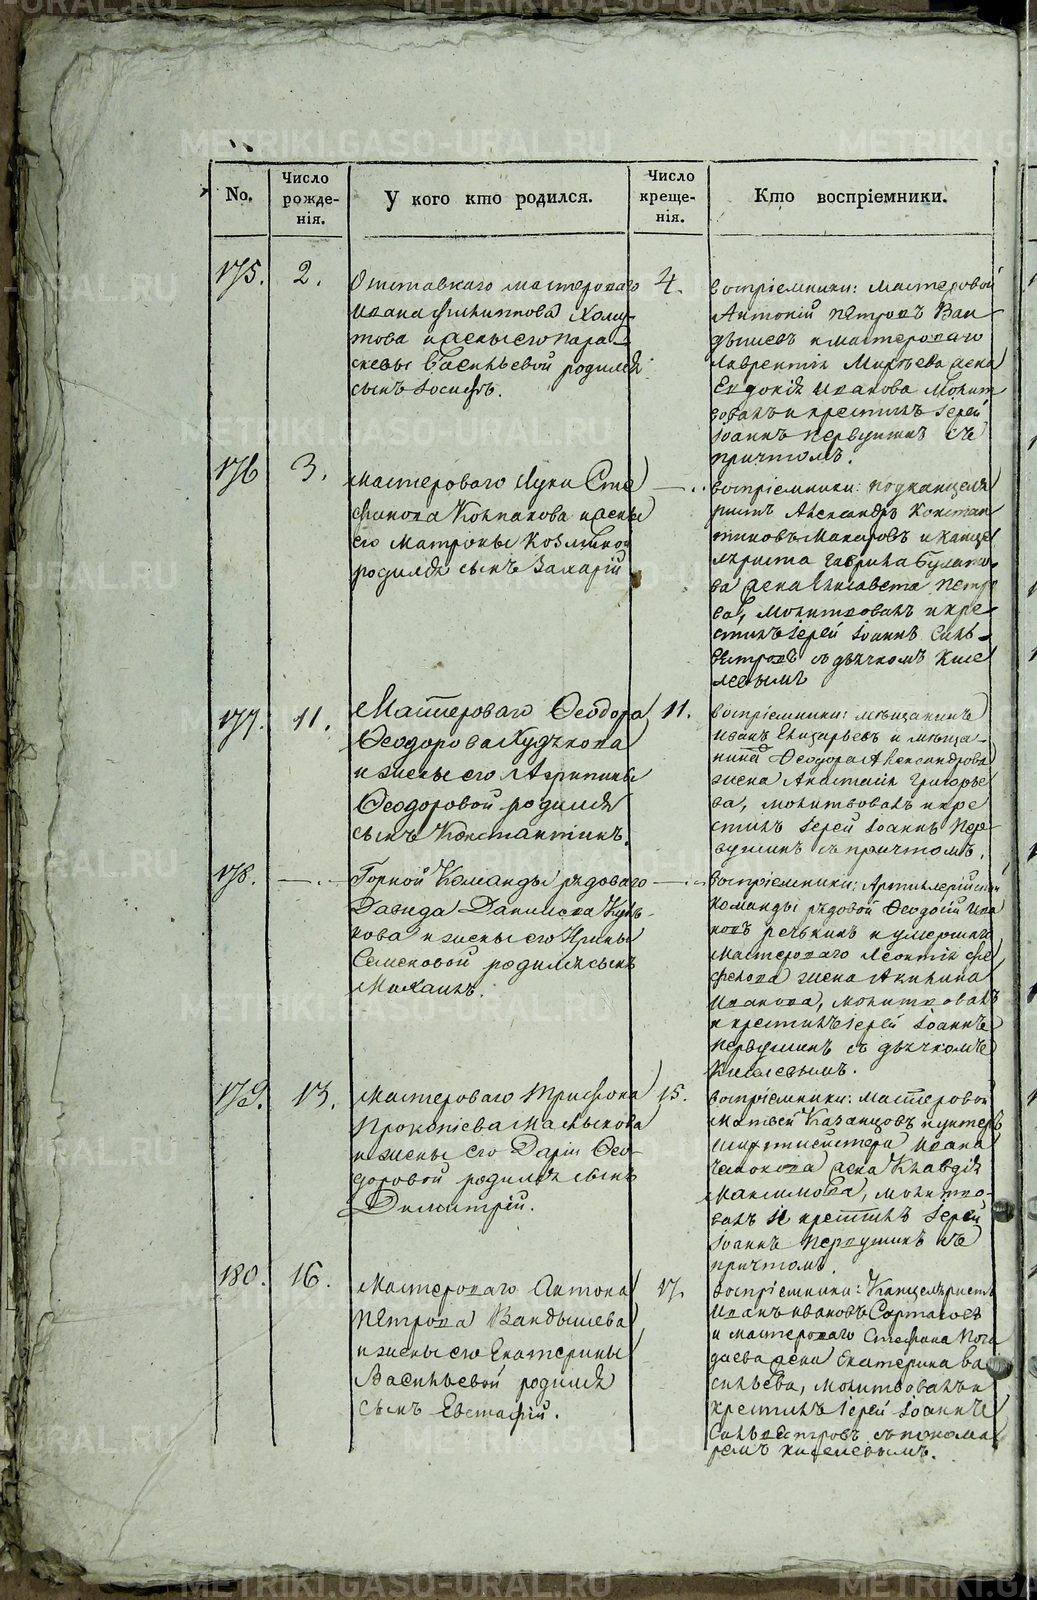 METRIKI.GASO-URAL.RU
No.
Число рожденія.
У кого кто родился.
Число крещенія.
Кто воспріемники.
175.
2.
Отставнаго мастероваго
Ивана Филиппова Холи-
това и жены его Пара-
скевы Васильевой родился
сынъ Іосифъ.
4.
воспріемники: мастеровой
Антоній Петровъ Ван-
дышевъ и мастероваго
Лаврентія жена
Евдокія Иванова Молит
вовалъ и крестилъ Іерей
Іоаннъ Первушинъ съ
причтомъ.
176
3.
мастероваго Луки Сте
фанова Колпакова и жены
его Матроны Козминой
родился сынъ Захарій
воспріемники: подканцеля
ристъ Александръ Констан
тиновъ Макаровъ и канце
ляриста Гавріила
ва жена Елисавета Петро
ва, молитвовалъ и кре
стилъ Іерей Іоаннъ Силь-
вестровъ съ дьячкомъ Кисе
левымъ
177.
11.
Мастероваго Ѳеодора
Ѳеодорова Худякова
и жены его Агрипины
Ѳеодоровой родился
сынъ Константинъ.
11.
воспріемники: мѣщанинъ
Иванъ Елизарьевъ и мѣща-
нина Ѳеодора Александрова
жена Анастасія Григорье
ва, молитвовалъ и кре
стилъ Іерей Іоаннъ Пер-
вушинъ съ причтомъ.
178.
Горной Команды рядоваго
Давида Данилова Кули-
кова и жены его Ирины
Семеновой родился сынъ
Михаилъ.
воспріемники: Артиллерійской
команды рядовой Ѳеодосій Ива
новъ Речкинъ и умершаго
Мастероваго Леонтія
жена Акилина
Иванова, молитвовалъ
и крестилъ Іерей Іоаннъ
Первушинъ съ дьячкомъ
Киселевымъ.
179.
13.
Мастероваго Трифона
Прокопіева Малькова
и жены его Даріи Ѳео-
доровой родился сынъ
Димитрій.
15.
воспріемники: мастеровой
Матвей Казанцовъ и унтеръ
шихтмейстера Ивана
жена Клавдія
Максимова, молитво-
валъ и крестилъ Іерей
Іоаннъ Первушинъ съ
причтомъ.
180.
16.
Мастероваго Антона
Петрова Вандышева
и жены его Екатерины
Васильевой родился
сынъ Евстафій.
17.
воспріемники: Канцеляристъ
Иванъ Ивановъ
и мастероваго Стефана Пога
даева жена Екатерина Ва
сильева, молитвовалъ и
крестилъ Іерей Іоаннъ
Сильвестровъ съ понома
ремъ Киселевымъ.